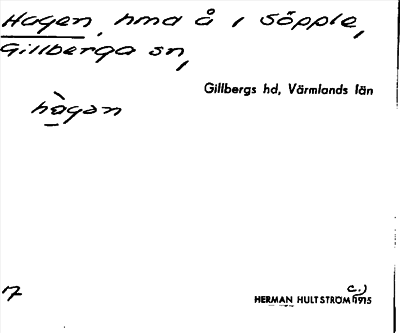 Hagen, hmd å i Söpple,
Gillberga sn,
Gillbergs hd, Värmlands län
hàgan
17
HERMAN HULTSTRÖM (c.) 1915